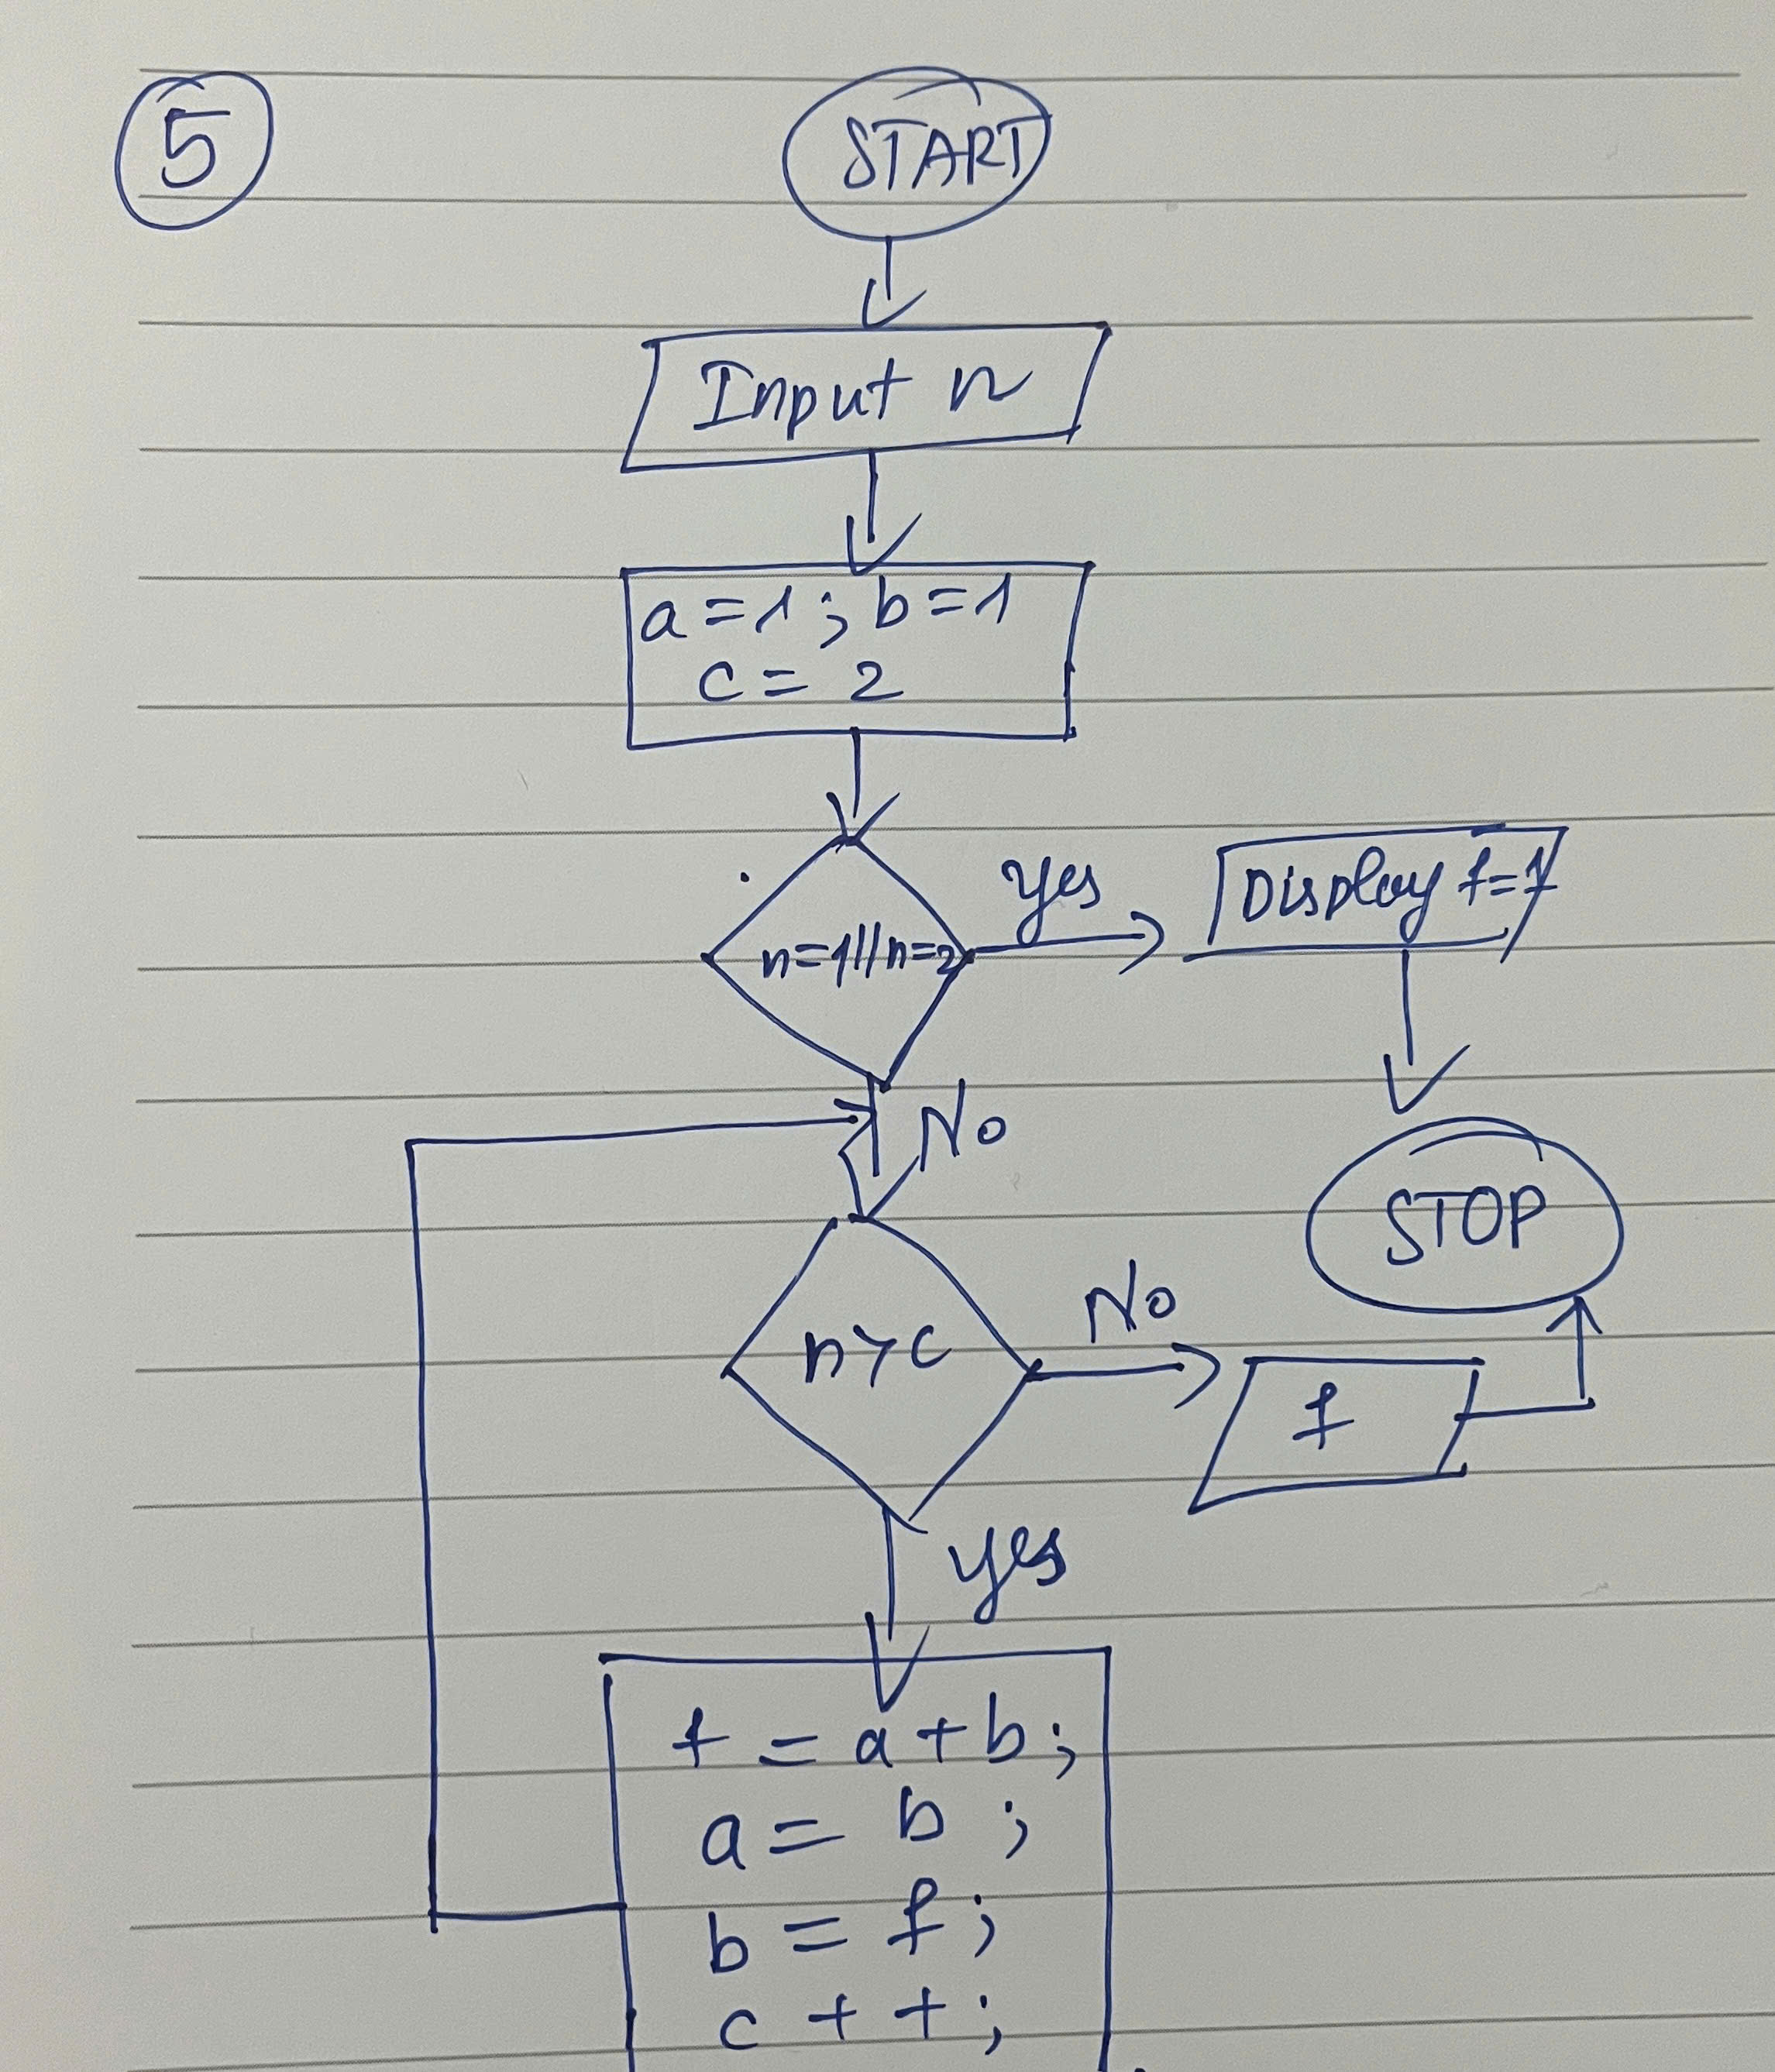 5
START
Input n
a=1; b=1
c = 2
n=1||n=2
Yes
Display f=1
No
STOP
n>c
No
f
yes
f = a+b;
a = b;
b = f;
c++;